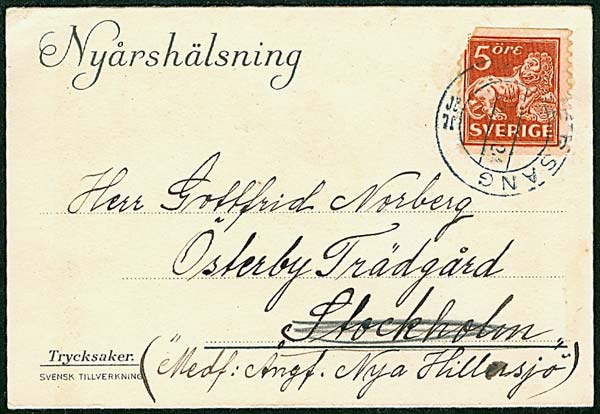 Nyårshälsning
5 ÖRE
SVERIGE
Herr Gottfrid Norberg
Österby Trädgård
Stockholm
Trycksaker.
SVENSK TILLVERKNING
("Medf: Ångf. Nya Hillersjö")